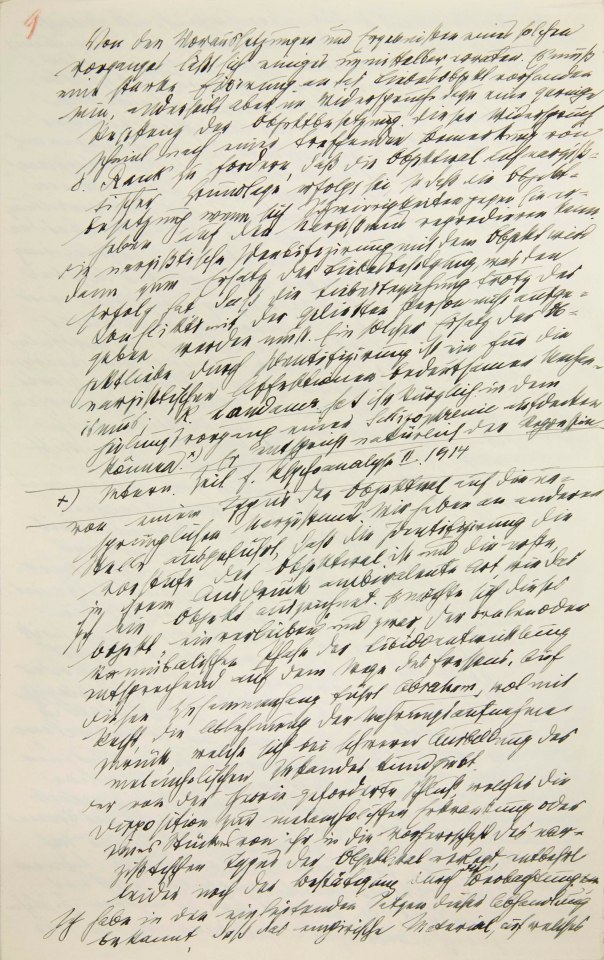 Von den Voraussetzungen und Ergebnissen eines solchen
Vorganges läßt sich einiges unmittelbar erraten. Es muß
eine starke Fixierung an das Liebesobjekt vorhanden
sein, anderseits aber im Widerspruche dazu eine geringe
Resistenz der Objektbesetzung. Dieser Widerspruch
scheint nach einer treffenden Bemerkung von
O. Rank zu fordern, daß die Objektwal auf narzißti-
scher Grundlage erfolgt sei, so daß die Objekt-
besetzung wenn sich Schwierigkeiten gegen sie er-
heben auf den Narzißmus regredieren kann.
Die narzißtische Identifizierung mit dem Objekt wird
dann zum Ersatz der Liebesbesetzung, was den
Erfolg hat, daß die Liebesbeziehung trotz des
Konflikts mit der geliebten Person nicht aufge-
geben werden muß. Ein solcher Ersatz der Ob-
jektliebe durch Identifizierung ist ein für die
narzißtischen Affektionen bedeutsamer Mechan-
ismus. K. Landauer hat ihn kürzlich in dem
Heilungsvorgang einer Schizophrenie aufdecken
können. x) Er entspricht natürlich der Regression
+) Intern. Zeit. f. Psychoanalyse II. 1914
von einem Typus der Objektwal auf den ur-
sprünglichen Narzißmus. Wir haben an anderer
Stelle ausgeführt, daß die Identifizierung die
Vorstufe der Objektwal ist und die erste,
in ihrem Ausdruck ambivalente Art wie das
Ich ein Objekt auszeichnet. Es möchte sich dieses
Objekt einverleiben und zwar der oralen oder
kannibalischen Phase der Libidoentwicklung
entsprechend auf dem Wege des Fressens. Auf
diesen Zusammenhang führt Abraham, wol mit
Recht, die Ablehnung der Nahrungsaufnahme
zurück welche sich bei schwerer Ausbildung des
melancholischen Zustandes kundgibt
Der von der Theorie geforderte Schluß welcher die
Disposition zur melancholischen Erkrankung oder
eines Stückes von ihr in die Vorherrschaft des nar-
zißtischen Typus der Objektwal verlegt, entbehrt
leider noch der Bestätigung durch Beobachtungen
Ich habe in den einleitenden Sätzen dieser Abhandlung
bekannt, daß das empirische Material, auf welches